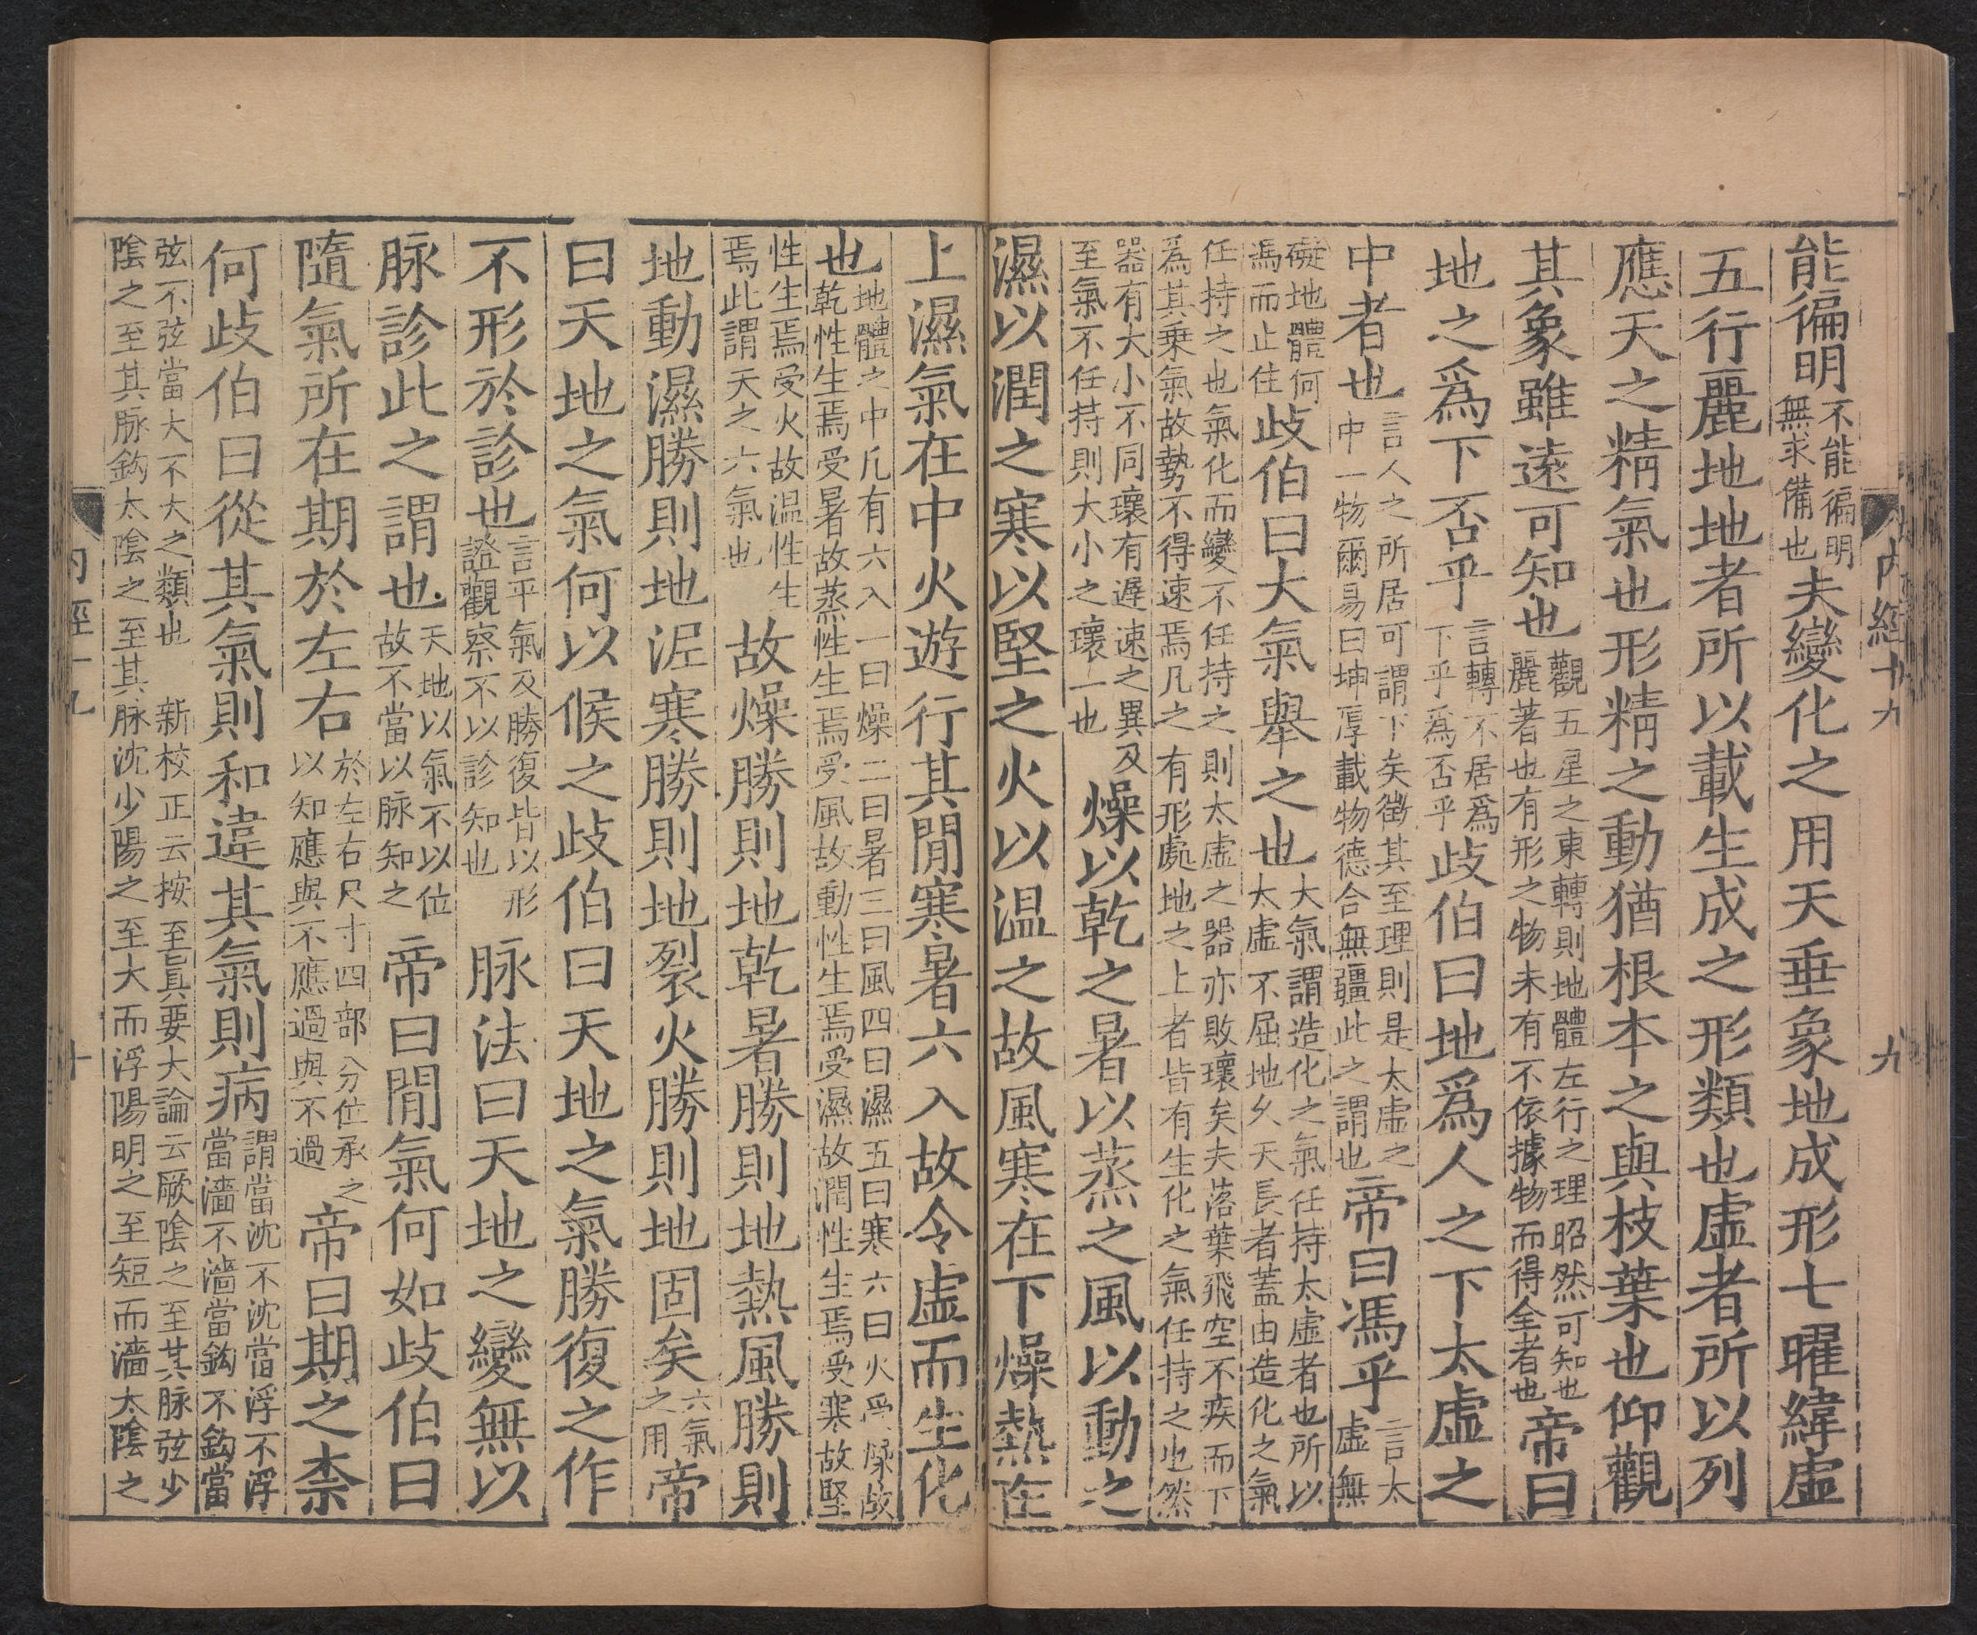 能徧明不能徧明無求備也夫變化之用天垂象地成形七曜緯虛
五行麗地地者所以載生成之形類也虛者所以列
應天之精氣也形精之動猶根本之與枝葉也仰觀
其象雖遠可知也觀五星之東轉則地體左行之理昭然可知也麗著也有形之物未有不依據物而得全者也帝曰
地之爲下否乎言轉不居爲下乎爲否乎歧伯曰地爲人之下太虛之
中者也言人之所居可謂下矣徵其至理則是太虛之中一物爾易曰坤厚載物德合無疆此之謂也帝曰馮乎言太虛無
礙地體何馮而止住歧伯曰大氣舉之也大氣謂造化之氣任持太虛者也所以太虛不屈地乆天長者蓋由造化之氣
任持之也氣化而變不任持之則太虛之器亦敗壞矣夫落葉飛空不疾而下爲其乗氣故勢不得速焉凡之有形處地之上者皆有生化之氣任持之也然
器有大小不同壞有遲速之異及至氣不任持則大小之壞一也燥以乾之暑以蒸之風以動之
濕以潤之寒以堅之火以温之故風寒在下燥熱在
內經十九
九
上濕氣在中火遊行其閒寒暑六入故令虛而生化
也地體之中凡有六入一曰燥二曰暑三曰風四曰濕五曰寒六曰火受燥故乾性生焉受暑故蒸性生焉受風故動性生焉受濕故潤性生焉受寒故堅
性生焉受火故温性生焉此謂天之六氣也故燥勝則地乾暑勝則地熱風勝則
地動濕勝則地泥寒勝則地裂火勝則地固矣六氣之用帝
曰天地之氣何以候之歧伯曰天地之氣勝復之作
不形於診也言平氣及勝復皆以形證觀察不以診知也脉法曰天地之變無以
脉診此之謂也天地以氣不以位故不當以脉知之帝曰閒氣何如歧伯曰
隨氣所在期於左右於左右尺寸四部分位承之以知應與不應過與不過帝曰期之柰
何歧伯曰從其氣則和違其氣則病謂當沈不沈當浮不浮當濇不濇當鈎不鈎當
弦不弦當大不大之類也新校正云按至眞要大論云厥陰之至其脉弦少陰之至其脉鈎太陰之至其脉沈少陽之至大而浮陽明之至短而濇太陰之
內經十九
十